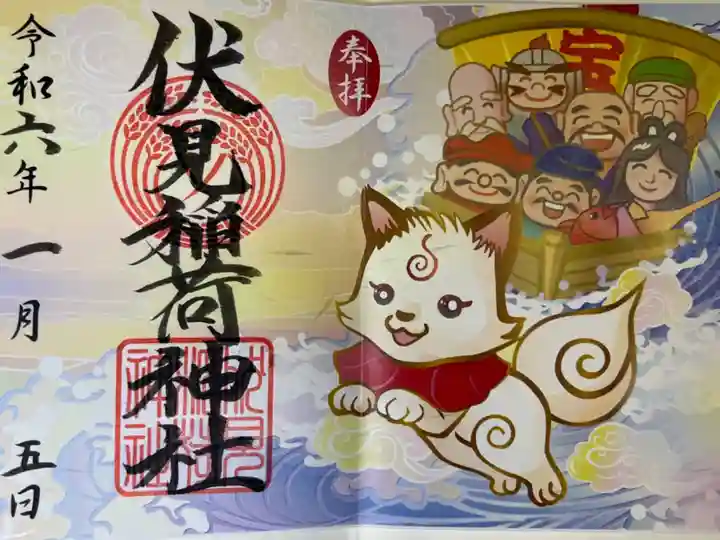 奉拝
宝
伏見稲荷神社
令和六年 一月 五日